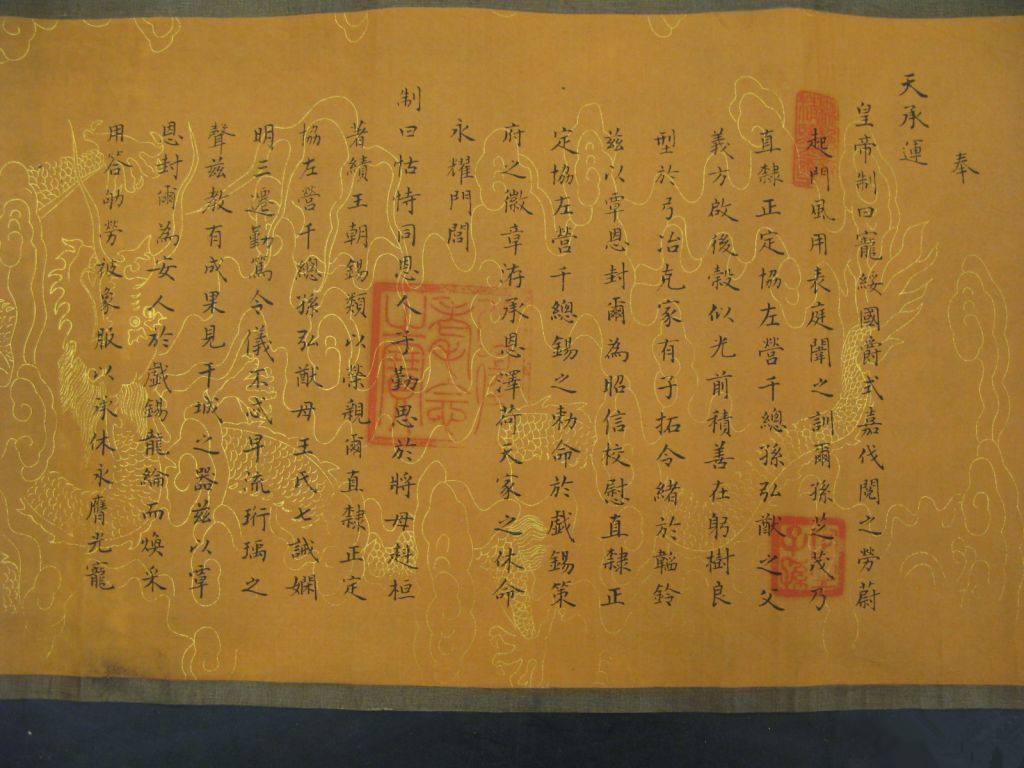 奉
天承運
皇帝制曰寵綏國爵式嘉伐閱之勞蔚
起門風用表庭闈之訓爾孫芝茂乃
直隸正定協左營千總孫弘猷之父
義方啟後穀似光前積善在躬樹良
型於弓冶克家有子拓令緒於韜鈴
茲以覃恩封爾為昭信校慰直隸正
定協左營千總錫之勅命於戲錫策
府之徽章洊承恩澤荷天家之休命
永耀門閭
制曰怙恃同恩人子勤思於將母赳桓
著績王朝錫類以榮親爾直隸正定
協左營千總孫弘猷母王氏七誡嫻
明三遷勤篤令儀不忒早流珩瑀之
聲茲教有成果見干城之器茲以覃
恩封爾為安人於戲錫龍綸而煥采
用答劬勞被象服以承休永膺光寵